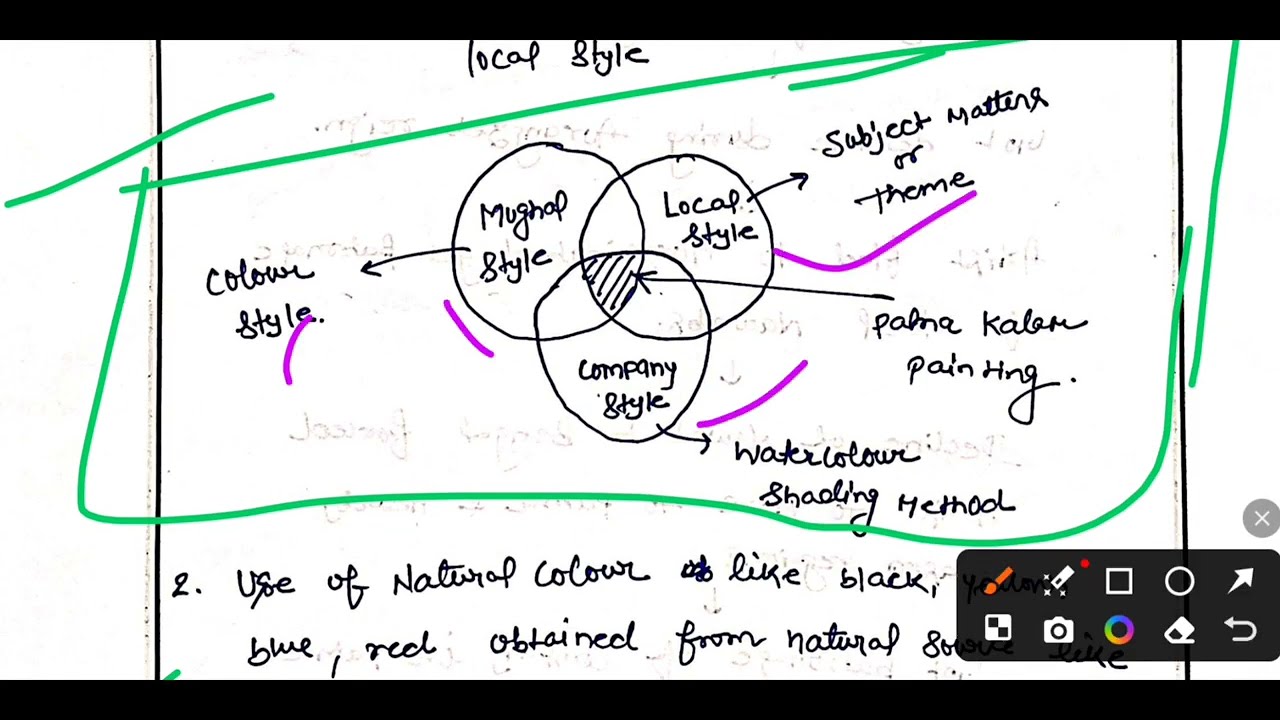 local Style
Subject Matters
or
Theme
Mughal
Style
Local
Style
Colour
Style.
Patna Kalam
Painting.
Company
Style
Watercolour
Shading Method
2. Use of Natural Colour like black,
blue, red obtained from natural source like